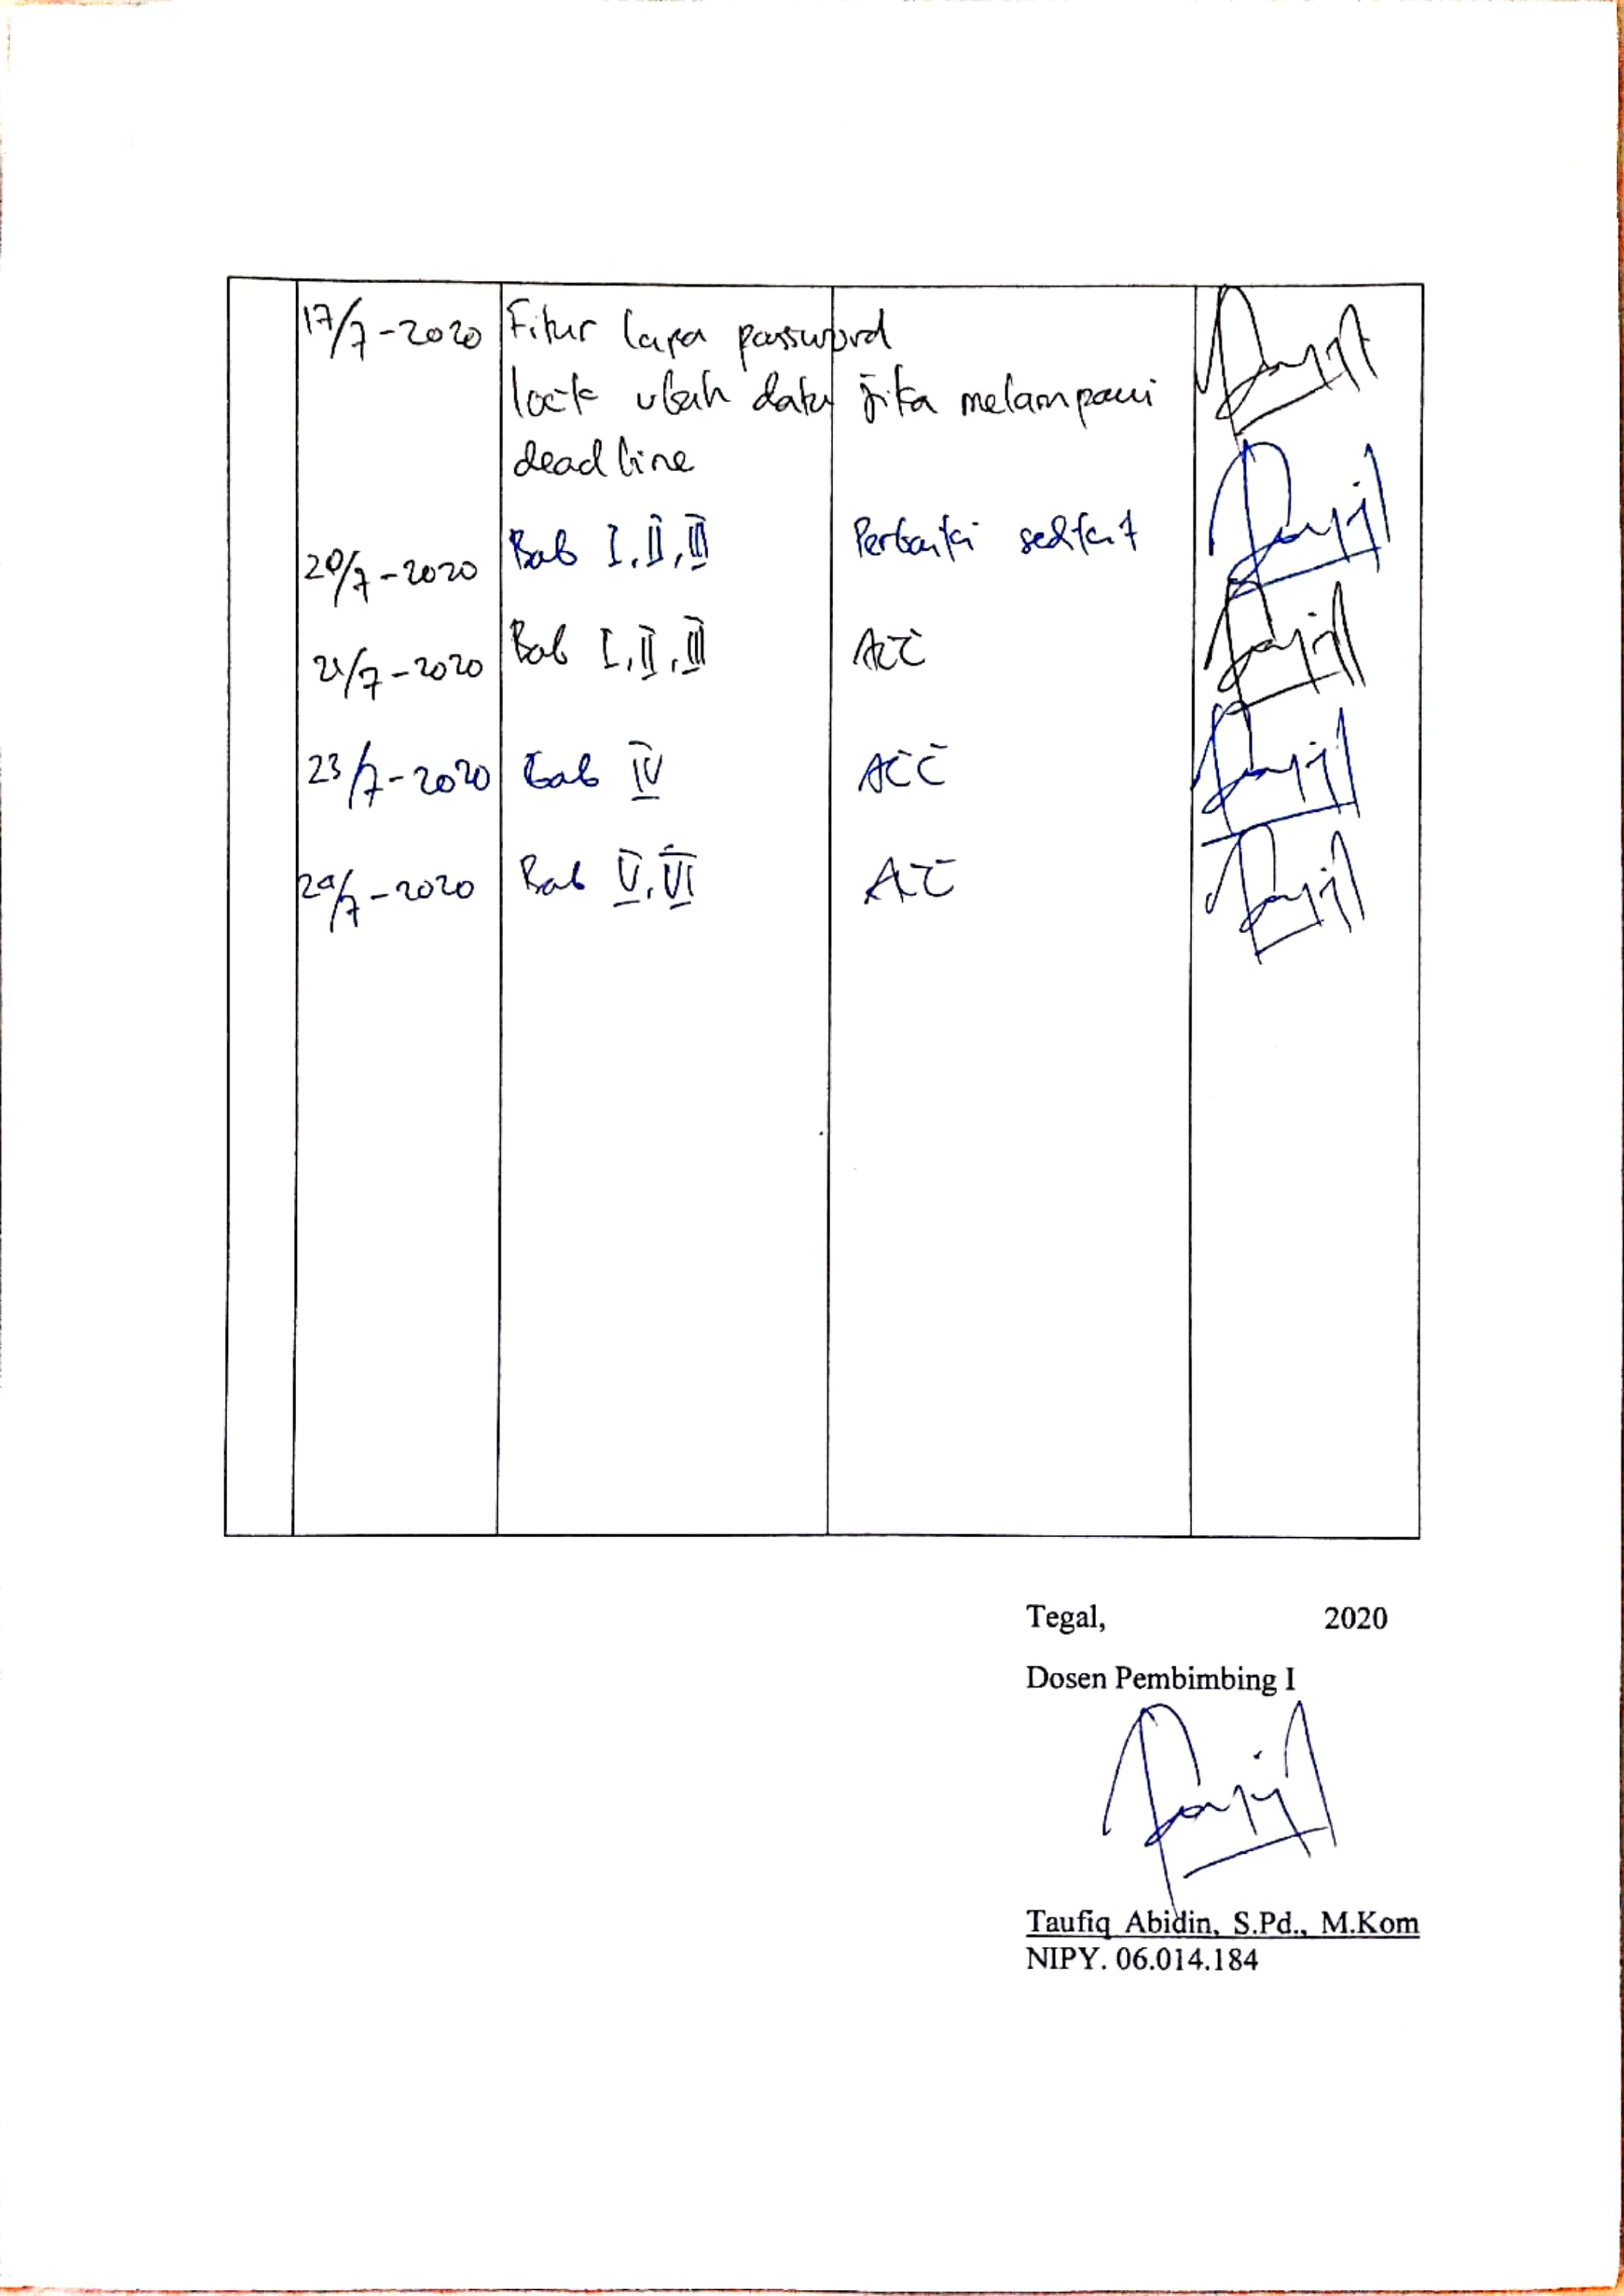 17/7-2020 Fitur lupa password
lock ubah data jika melampaui
deadline
20/7-2020 Bab I, II, III Perbaiki sedikit
21/7-2020 Bab I, II, III ACC
23/7-2020 Bab IV ACC
/7-2020 Bab V, VI ACC
Tegal, 2020
Dosen Pembimbing I
Taufiq Abidin, S.Pd., M.Kom
NIPY. 06.014.184